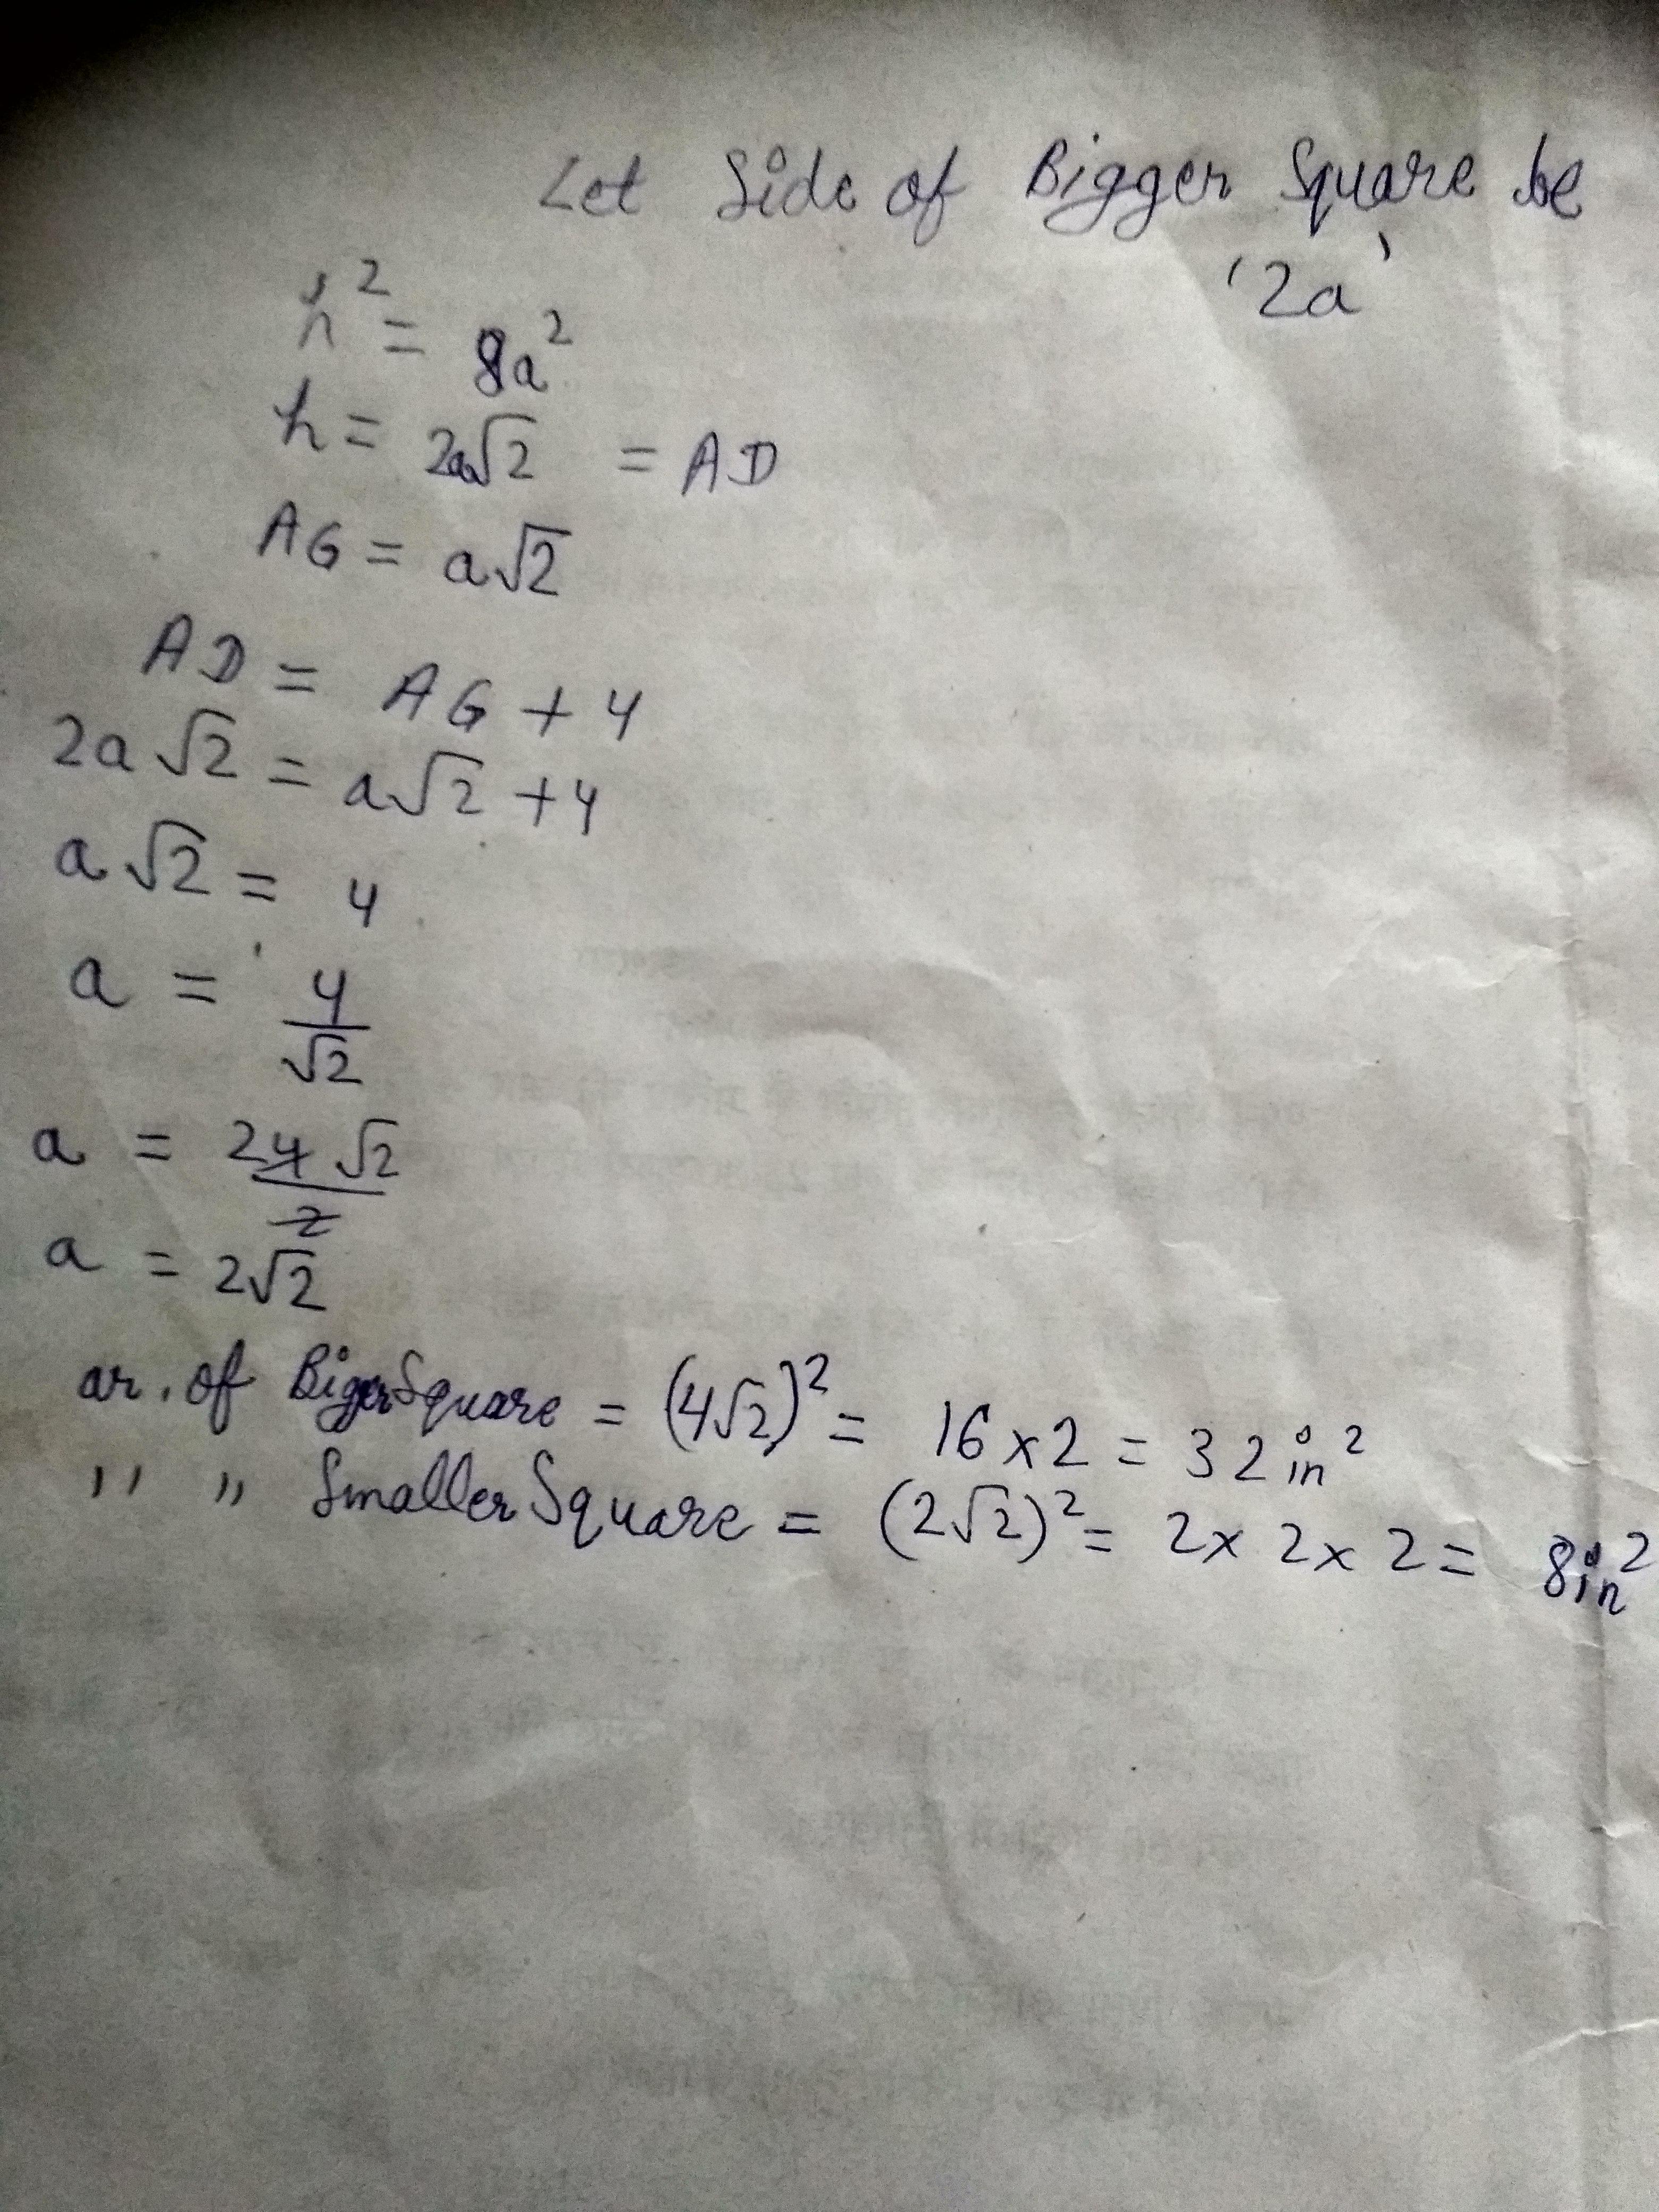 Let Side of Bigger Square be
'2a'
h² = 8a²
h = 2a√2 = AD
AG = a√2
AD = AG + 4
2a√2 = a√2 + 4
a√2 = 4
a = 4/√2
a = 24√2/2
a = 2√2
ar. of BiggerSquare = (4√2)² = 16 × 2 = 32 in²
,, ,, Smaller Square = (2√2)² = 2 × 2 × 2 = 8in²